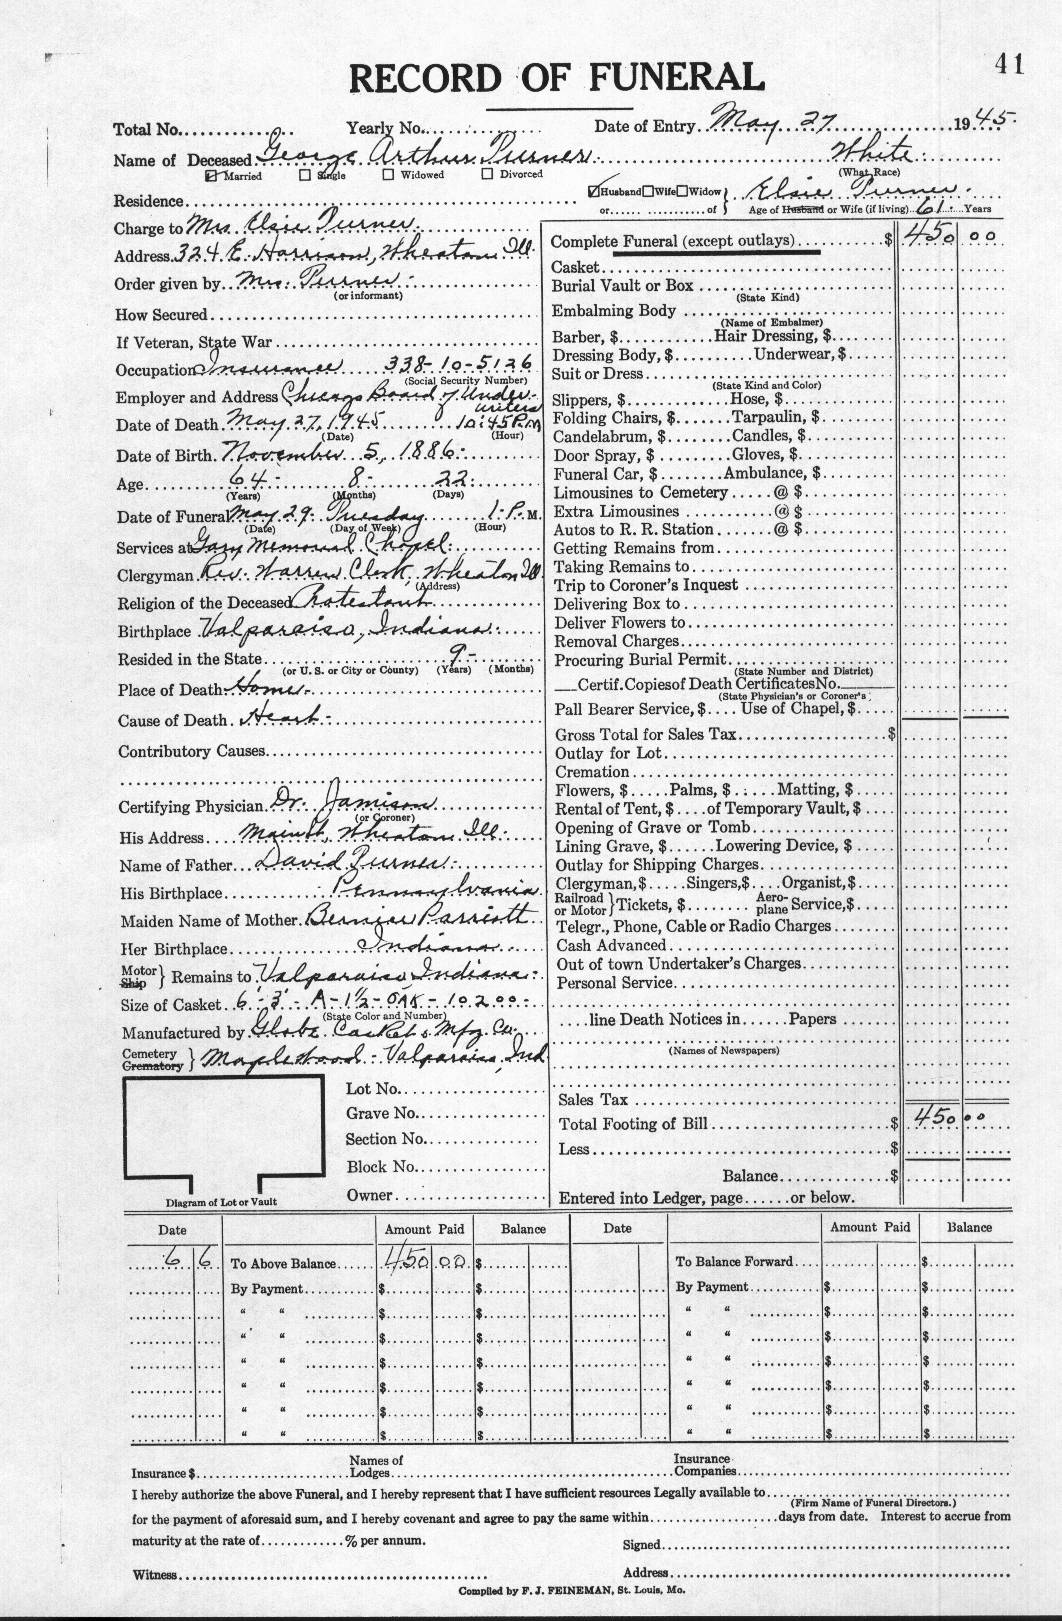 41
RECORD OF FUNERAL
Total No. Yearly No. Date of Entry May 27 1945.
Name of Deceased George Arthur Purner. White.
Married Single Widowed Divorced (What Race)
Residence Husband Wife Widow or of } Elsie Purner.
Age of Husband or Wife (if living) 61 Years
Charge to Mrs. Elsie Purner.
Address 324 E. Harrison, Wheaton Ill.
Order given by Mrs. Purner.
(or informant)
How Secured
If Veteran, State War
Occupation Insurance 338-10-5126
(Social Security Number)
Employer and Address Chicago Board of Under-
writers
Date of Death May 27, 1945 10:45 P.M
(Date) (Hour)
Date of Birth November 5, 1886.
Age 64 - 8 - 22.
(Years) (Months) (Days)
Date of Funeral May 29. Tuesday 1. P. M.
(Date) (Day of Week) (Hour)
Services at Gary Memorial Chapel.
Clergyman Rev. Warren Clark, Wheaton Ill
(Address)
Religion of the Deceased Protestant
Birthplace Valparaiso, Indiana.
Resided in the State 9-
(or U. S. or City or County) (Years) (Months)
Place of Death Home.
Cause of Death Heart.
Contributory Causes
Certifying Physician Dr. Jamison
(or Coroner)
His Address Main St, Wheaton Ill.
Name of Father David Purner.
His Birthplace Pennsylvania
Maiden Name of Mother Bernice Parriott
Her Birthplace Indiana
Motor Ship } Remains to Valparaiso Indiana.
Size of Casket 6'-3" - A-1½-OAK-10200-
(State Color and Number)
Manufactured by Globe Casket & Mfg. Co.
Cemetery Crematory } Maplewood - Valparaiso, Ind
Lot No.
Grave No.
Section No.
Block No.
Owner
Diagram of Lot or Vault
Complete Funeral (except outlays) $ 450 00
Casket
Burial Vault or Box
(State Kind)
Embalming Body
(Name of Embalmer)
Barber, $ Hair Dressing, $
Dressing Body, $ Underwear, $
Suit or Dress
(State Kind and Color)
Slippers, $ Hose, $
Folding Chairs, $ Tarpaulin, $
Candelabrum, $ Candles, $
Door Spray, $ Gloves, $
Funeral Car, $ Ambulance, $
Limousines to Cemetery @ $
Extra Limousines @ $
Autos to R. R. Station @ $
Getting Remains from
Taking Remains to
Trip to Coroner's Inquest
Delivering Box to
Deliver Flowers to
Removal Charges
Procuring Burial Permit
(State Number and District)
Certif. Copies of Death Certificates No.
(State Physician's or Coroner's)
Pall Bearer Service, $ Use of Chapel, $
Gross Total for Sales Tax $
Outlay for Lot
Cremation
Flowers, $ Palms, $ Matting, $
Rental of Tent, $ of Temporary Vault, $
Opening of Grave or Tomb
Lining Grave, $ Lowering Device, $
Outlay for Shipping Charges
Clergyman, $ Singers, $ Organist, $
Railroad or Motor } Tickets, $ Aero-plane Service, $
Telegr., Phone, Cable or Radio Charges
Cash Advanced
Out of town Undertaker's Charges
Personal Service
line Death Notices in Papers
(Names of Newspapers)
Sales Tax
Total Footing of Bill $ 450 00
Less $
Balance $
Entered into Ledger, page or below.
Date Amount Paid Balance Date Amount Paid Balance
6 6 To Above Balance 450 00 $ To Balance Forward $
By Payment $ $ By Payment $ $
" " $ $ " " $ $
" " $ $ " " $ $
" " $ $ " " $ $
" " $ $ " " $ $
" " $ $ " " $ $
" " $ $ " " $ $
Insurance $ Names of Lodges Insurance Companies
I hereby authorize the above Funeral, and I hereby represent that I have sufficient resources Legally available to
(Firm Name of Funeral Directors.)
for the payment of aforesaid sum, and I hereby covenant and agree to pay the same within days from date. Interest to accrue from
maturity at the rate of % per annum.
Signed
Witness Address
Compiled by F. J. FEINEMAN, St. Louis, Mo.